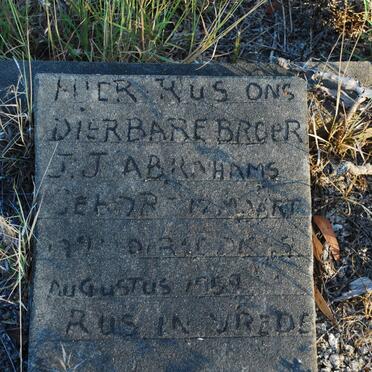 HIER RUS ONS
DIERBARE BROER
J.J ABRAHAMS
GEBOR MAART
AUGUSTUS 1959
RUS IN VREDE